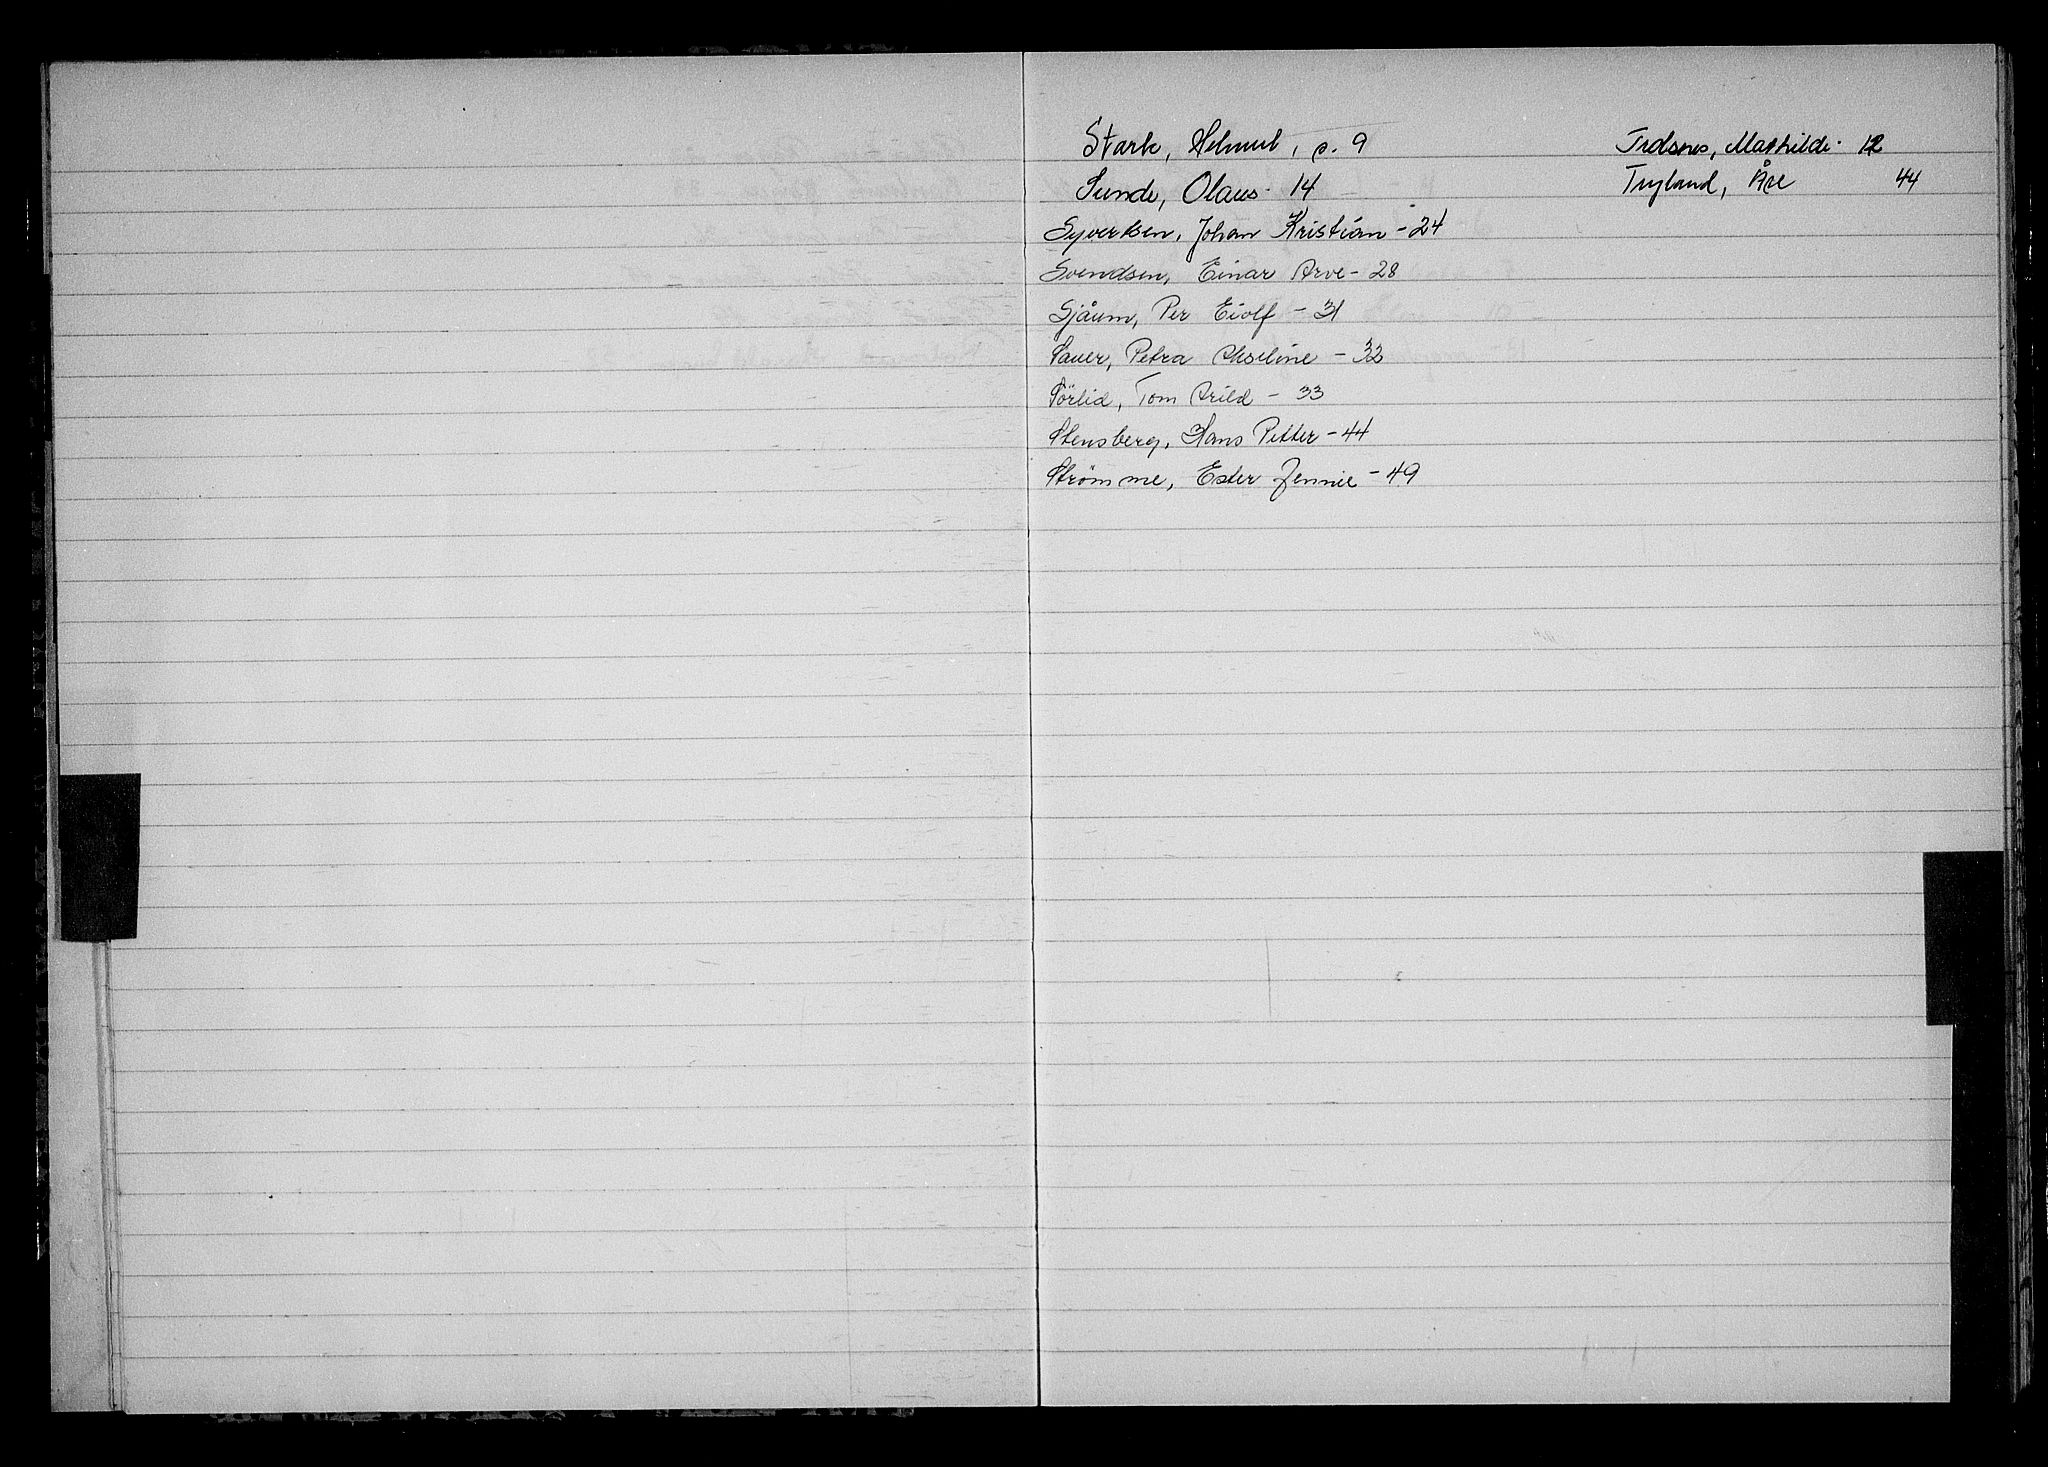 Stark, Helmut, s. 9
Sunde, Olaus - 14
Syvertsen, Johan Kristian - 24
Svendsen, Einar Arve - 28
Sjåum, Per Eiolf - 31
Sauer, Petra Akseline - 32
Sörlid, Tom Arild - 33
Stensberg, Hans Petter - 44
Strömme, Ester Jennie - 49
Mathilde - 12
Tryland, 44